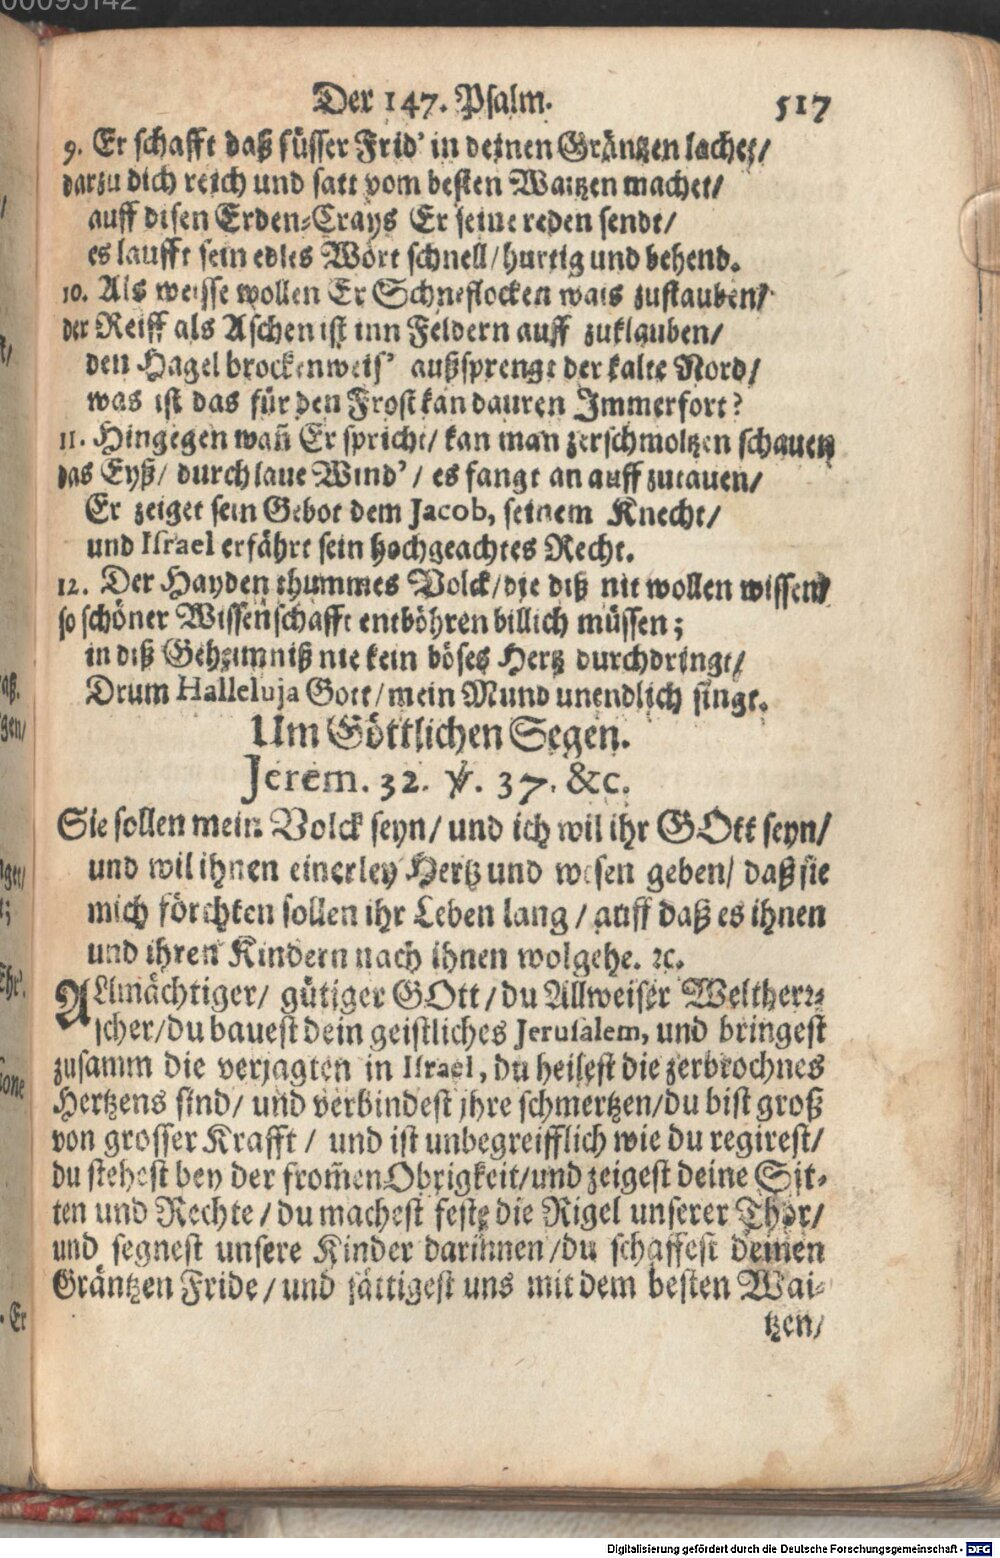 00095142
Der 147. Psalm. 517
9. Er schafft daß süsser Frid' in deinen Gräntzen lachet/
darzu dich reich und satt vom besten Waitzen machet/
auff disen Erden-Crays Er seine reden sendt/
es laufft sein edles Wort schnell/hurtig und behend.
10. Als weisse wollen Er Schneflocken wais zustauben/
der Reiff als Aschen ist inn Feldern auff zuklauben/
den Hagel brockenweis' außsprengt der kalte Nord/
was ist das für den Frost kan dauren Immerfort?
11. Hingegen wañ Er spricht/ kan man zerschmoltzen schauen
das Eyß/ durch laue Wind'/ es fangt an auff zutauen/
Er zeiget sein Gebot dem Jacob, seinem Knecht/
und Israel erfährt sein hochgeachtes Recht.
12. Der Hayden thummes Volck/die diß nit wollen wissen/
so schöner Wissenschafft entböhren billich müssen;
in diß Geheimniß nie kein böses Hertz durchdringt/
Drum Halleluja Gott/mein Mund unendlich singt.
Um Göttlichen Segen.
Jerem. 32. ℣. 37. &c.
Sie sollen mein Volck seyn/ und ich wil ihr GOtt seyn/
und wil ihnen einerley Hertz und wesen geben/ daß sie
mich förchten sollen ihr Leben lang/ auff daß es ihnen
und ihren Kindern nach ihnen wolgehe. ꝛc.
ALlmächtiger/ gütiger GOtt/du Allweiser Weltherr-
scher/du bauest dein geistliches Jerusalem, und bringest
zusamm die verjagten in Israel, du heilest die zerbrochnes
Hertzens sind/ und verbindest ihre schmertzen/du bist groß
von grosser Krafft/ und ist unbegreifflich wie du regirest/
du stehest bey der from̃en Obrigkeit/und zeigest deine Sit-
ten und Rechte/du machest feste die Rigel unserer Thor/
und segnest unsere Kinder darinnen/du schaffest deinen
Gräntzen Fride/und sättigest uns mit dem besten Wai-
tzen/
Digitalisierung gefördert durch die Deutsche Forschungsgemeinschaft - DFG